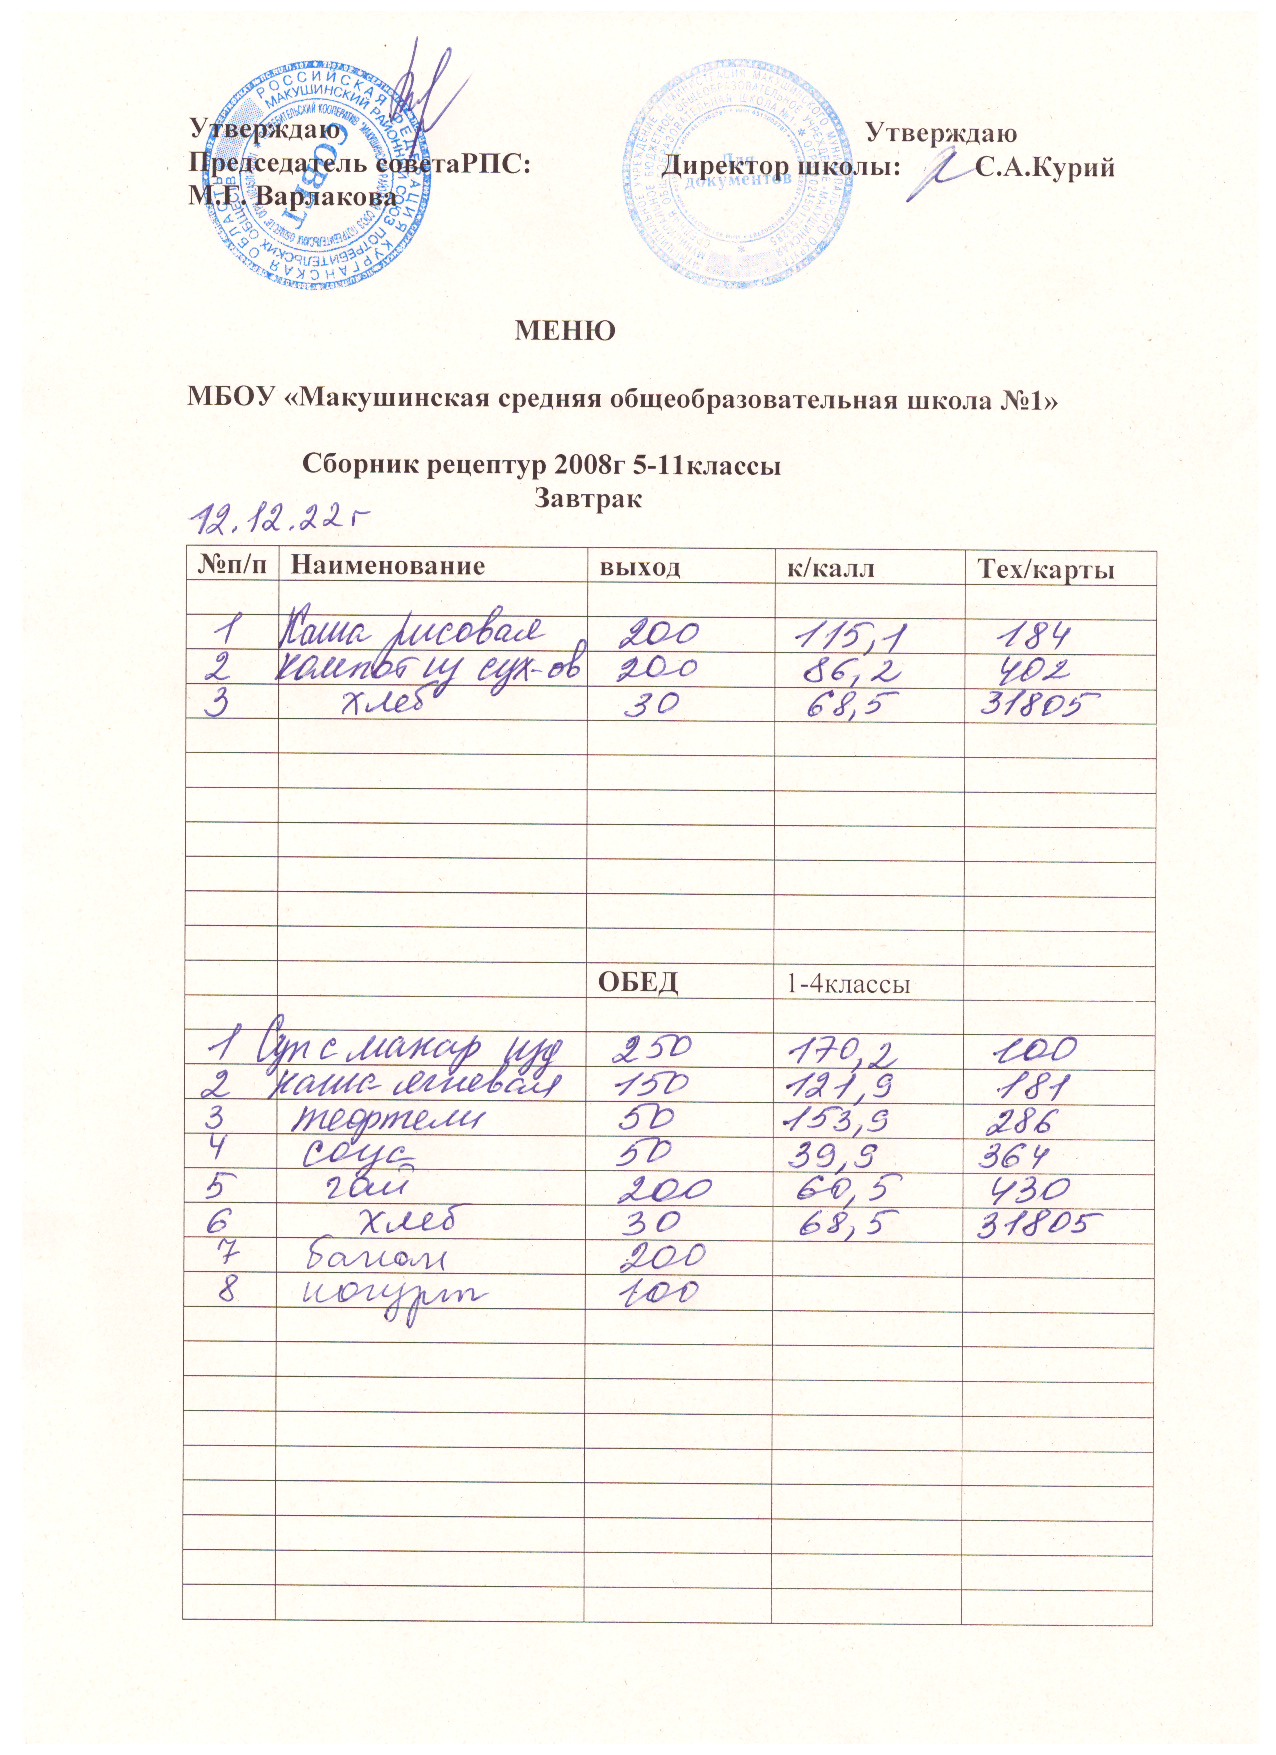 Утверждаю
Председатель советаРПС:
М.Г. Варлакова
Утверждаю
Директор школы: С.А.Курий
РОССИЙСКАЯ ФЕДЕРАЦИЯ КУРГАНСКАЯ ОБЛАСТЬ
МАКУШИНСКИЙ РАЙОННЫЙ СОЮЗ ПОТРЕБИТЕЛЬСКИХ ОБЩЕСТВ
СОВЕТ
Для
документов
МЕНЮ
МБОУ «Макушинская средняя общеобразовательная школа №1»
Сборник рецептур 2008г 5-11классы
Завтрак
12.12.22г
№п/п Наименование выход к/калл Тех/карты
1 Каша рисовая 200 115,1 184
2 компот из сух-ов 200 86,2 402
3 хлеб 30 68,5 31805
ОБЕД 1-4классы
1 Суп с макар изд 250 170,2 100
2 каша ячневая 150 121,9 181
3 тефтели 50 153,9 286
4 соус 50 39,9 364
5 чай 200 60,5 430
6 хлеб 30 68,5 31805
7 банан 200
8 йогурт 100